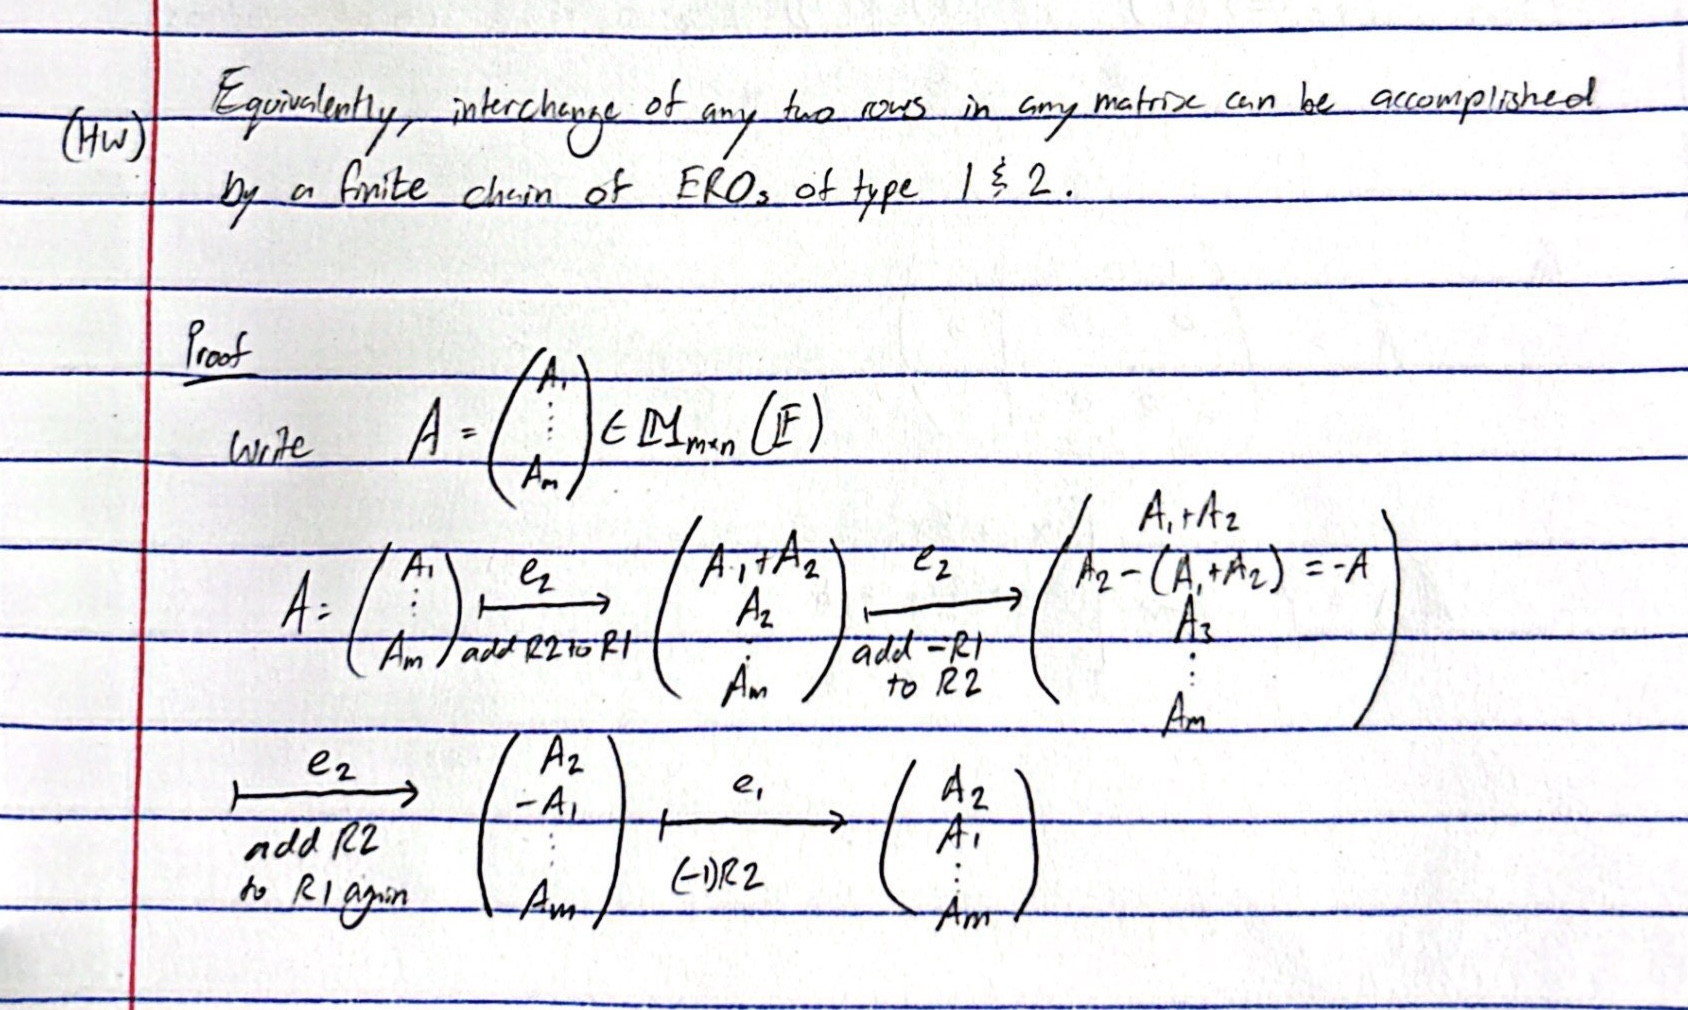 (HW) Equivalently, interchange of any two rows in any matrix can be accomplished
by a finite chain of EROs of type 1 & 2.
Proof
Write A = (A₁ ⋮ Aₘ) ∈ 𝕄ₘₓₙ (𝔽)
A = (A₁ ⋮ Aₘ) ⟼ e₂ add R2 to R1 (A₁+A₂ A₂ ⋮ Aₘ) ⟼ e₂ add -R1 to R2 (A₁+A₂ A₂-(A₁+A₂) = -A A₃ ⋮ Aₘ)
⟼ e₂ add R2 to R1 again (A₂ -A₁ ⋮ Aₘ) ⟼ e₁ (-1)R2 (A₂ A₁ ⋮ Aₘ)